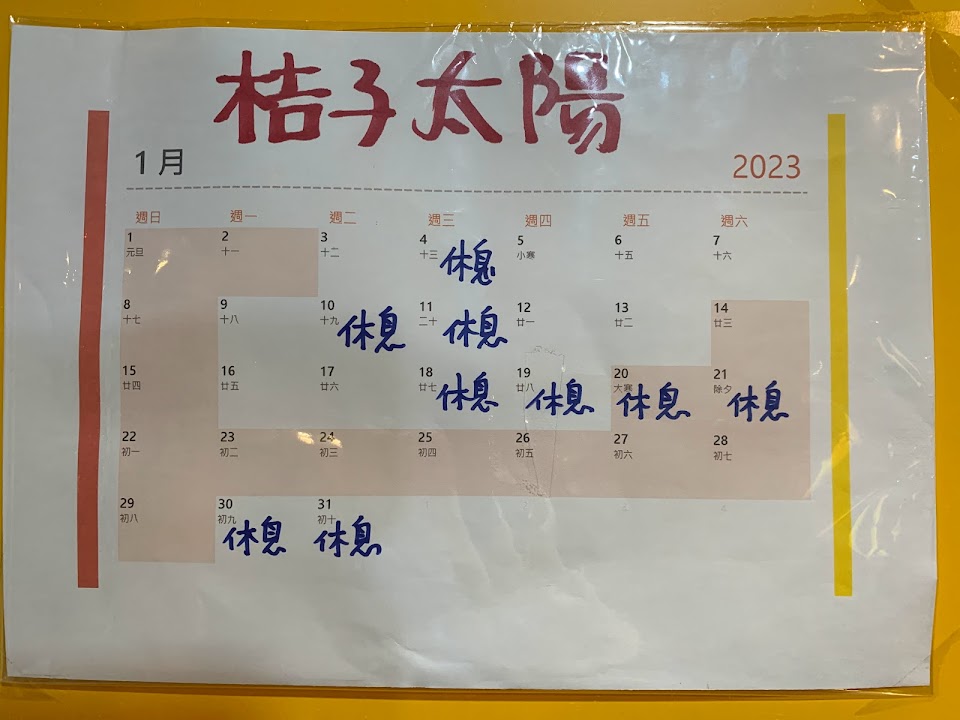 桔子太陽
1月 2023
週日 週一 週二 週三 週四 週五 週六
1 2 3 4 5 6 7
元旦 十一 十二 十三 休息 小寒 十五 十六
8 9 10 11 12 13 14
十七 十八 十九 休息 二十 休息 廿一 廿二 廿三
15 16 17 18 19 20 21
廿四 廿五 廿六 廿七 休息 廿八 休息 大寒 休息 除夕 休息
22 23 24 25 26 27 28
初一 初二 初三 初四 初五 初六 初七
29 30 31
初八 初九 休息 初十 休息